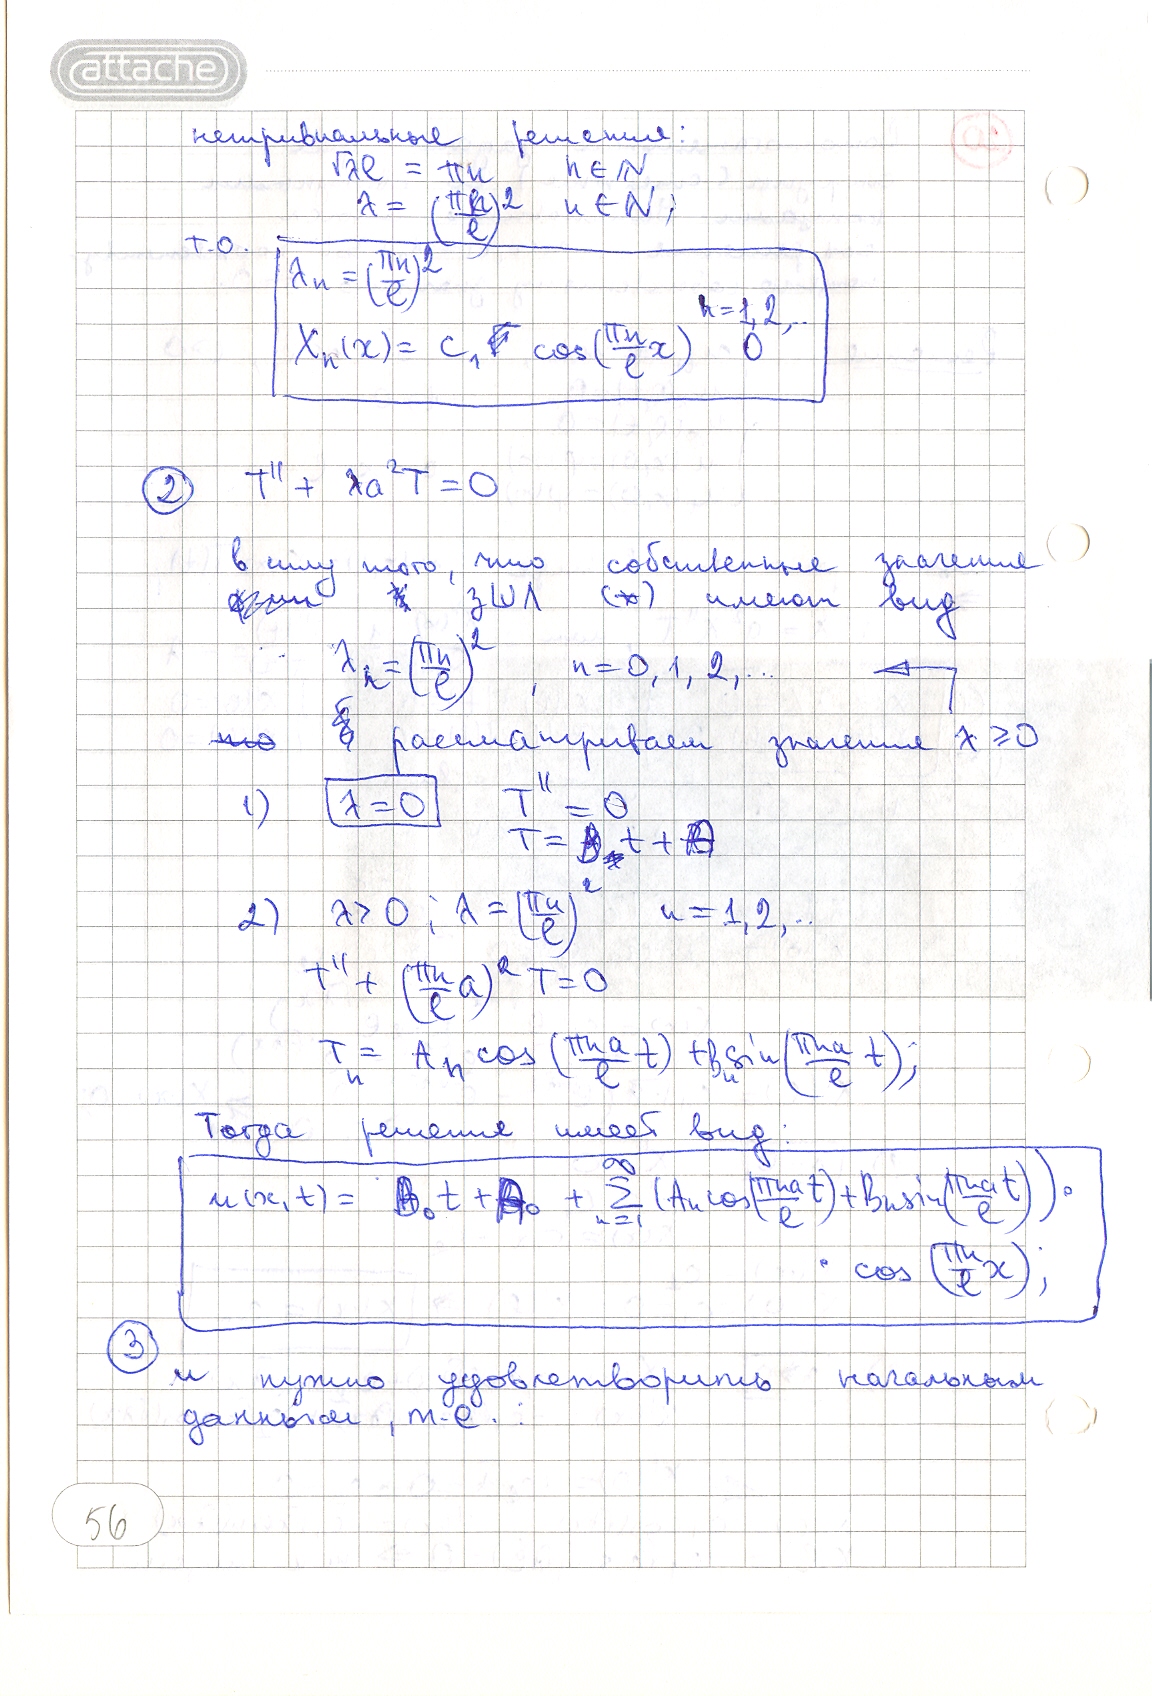 attache
нетривиальные решения:
√λl = πn n∈ℕ
λ = (πn/l)² n∈ℕ;
т.о.
λn = (πn/l)²
n=1,2,..
Xn(x) = C₁ cos(πn/l x) 0
② T'' + λa²T = 0
в силу того, что собственные значения
зШЛ (*) имеют вид
λn = (πn/l)², n=0,1,2,...
рассматриваем значения λ≥0
1) λ=0 T''=0
T = B t + A
2) λ>0; λ=(πn/l)² n=1,2,..
T'' + (πn/l a)² T=0
Tn = An cos(πna/l t) + Bn sin(πna/l t);
Тогда решение имеет вид:
u(x,t) = B₀t + A₀ + ∑_{n=1}^{∞} (An cos(πna/l t) + Bn sin(πna/l t)) ·
· cos(πn/l x);
③
и нужно удовлетворить начальным
данным, т.е. :
56